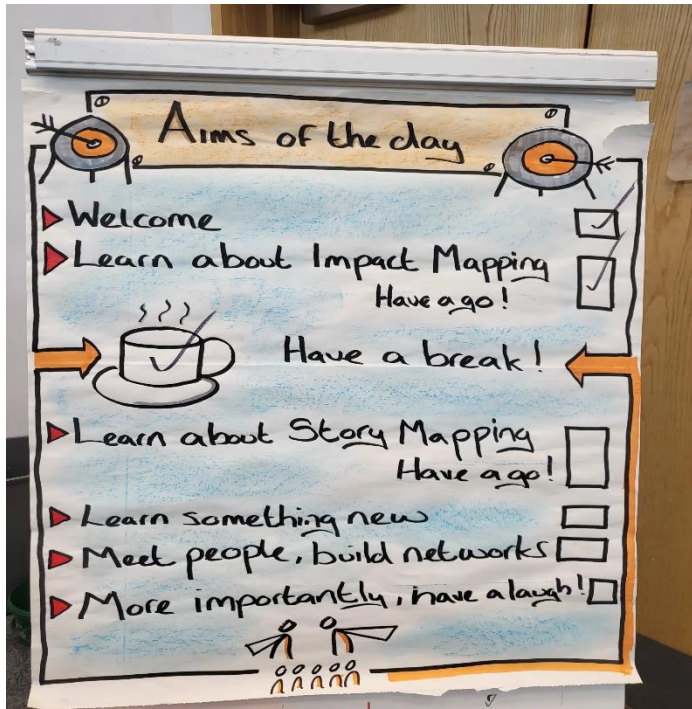 Aims of the day
Welcome
Learn about Impact Mapping
Have a go!
Have a break!
Learn about Story Mapping
Have a go!
Learn something new
Meet people, build networks
More importantly, have a laugh!